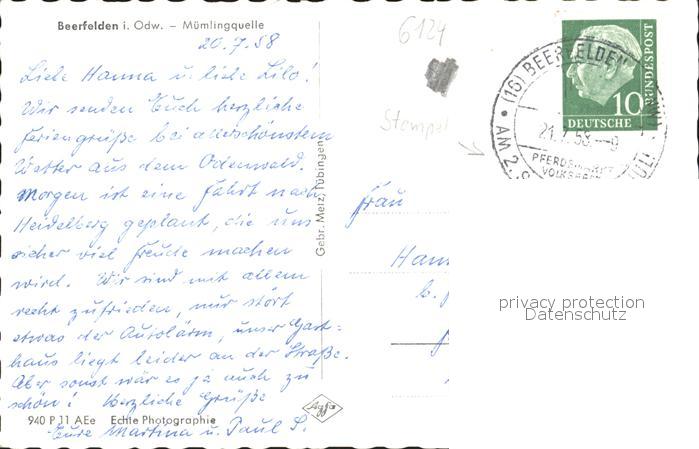 Beerfelden i. Odw. – Mümlingquelle
20.7.58
Liebe Hanna u. liebe Lilo!
Wir senden Euch herzliche
Feriengrüße bei allerschönstem
Wetter aus dem Odenwald.
Morgen ist eine Fahrt nach
Heidelberg geplant, die uns
sicher viel Freude machen
wird. Wir sind mit allem
recht zufrieden, nur stört
etwas der Autolärm, unser Gast=
haus liegt leider an der Straße.
Aber sonst wär es ja auch zu
schön! Herzliche Grüße
Eure Martina u. Paul S.
940 P 11 AEe Echte Photographie
Agfa
Gebr. Metz, Tübingen
6124
Stempel
(16) BEERFELDEN
21.7.58.--9
PFERDEMARKT
AM 2.
JULI
10
DEUTSCHE
BUNDESPOST
Frau
Hann
privacy protection
Datenschutz